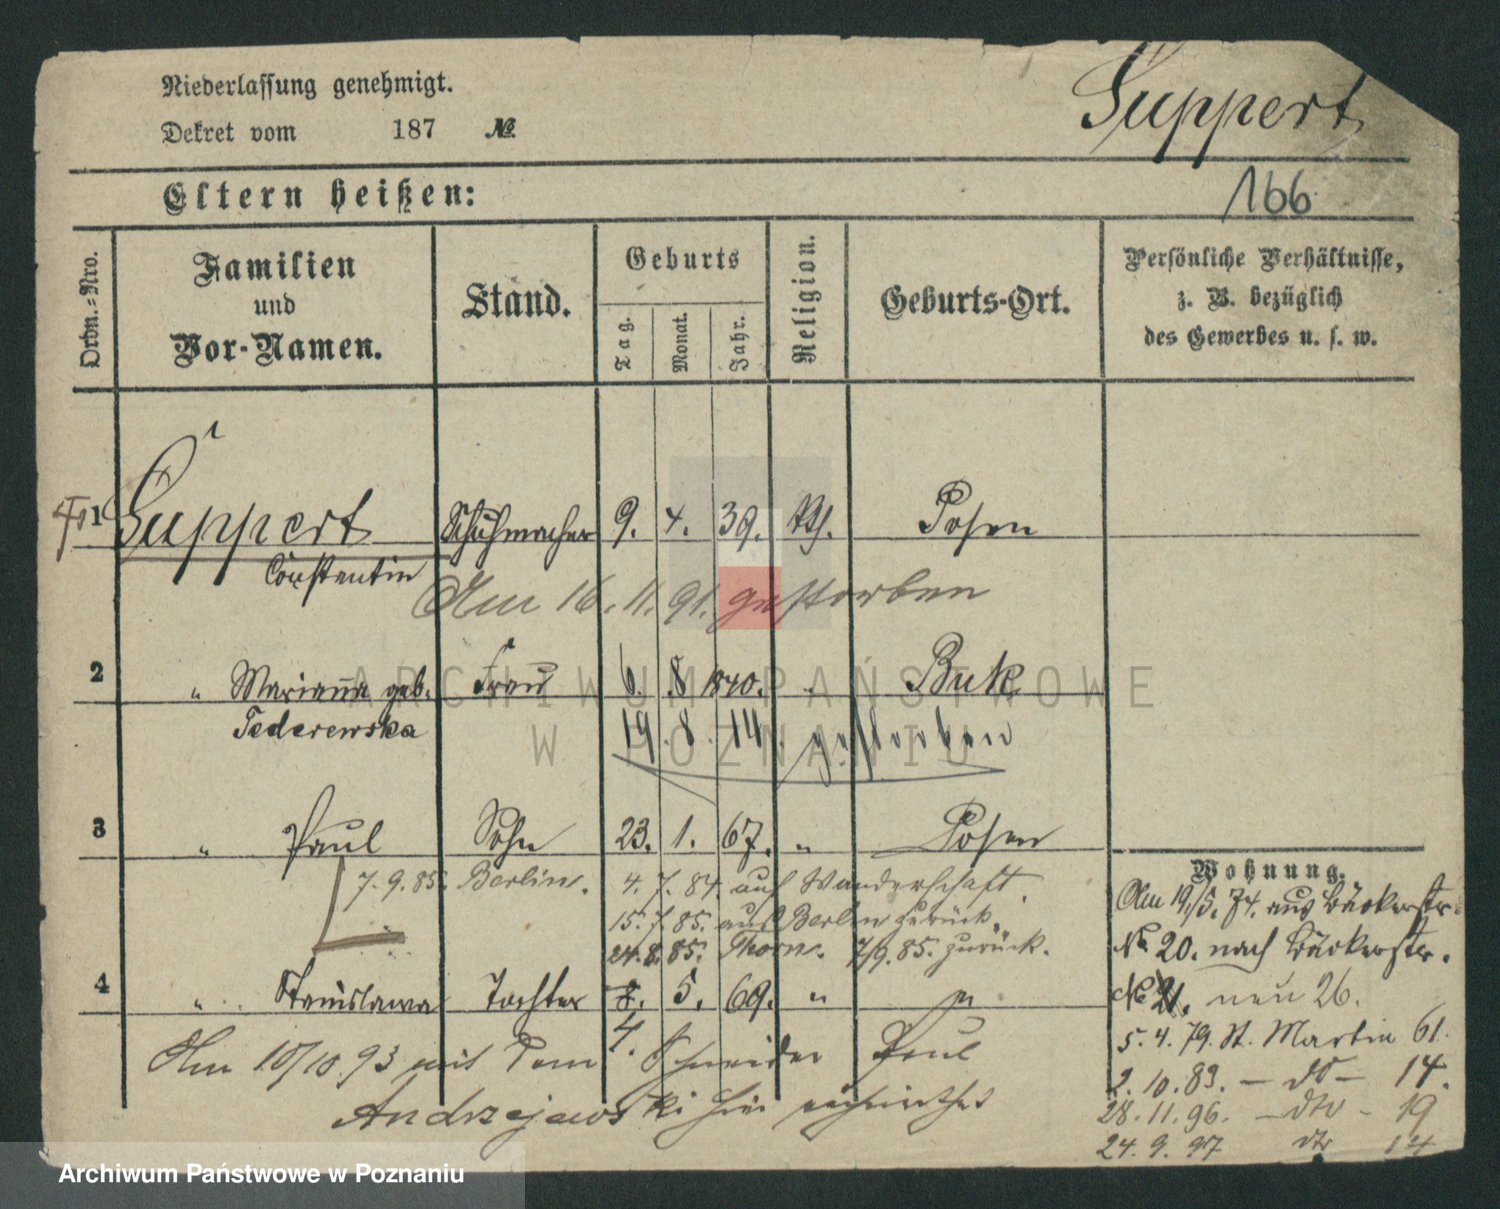 Niederlassung genehmigt.
Dekret vom 187 №
Suppert
166
Eltern heißen:
Ordn.-Nro.
Familien und Vor-Namen.
Stand.
Geburts
Tag.
Monat.
Jahr.
Religion.
Geburts-Ort.
Persönliche Verhältnisse,
z. B. bezüglich
des Gewerbes u. s. w.
1 Suppert Schuhmacher 9. 4. 39. Posen
Constantin
Am 16.11.91. gestorben
2 " Marianna geb. Frau 6. 8 1840. Buk
Federewska
19. 8. 14. gestorben
3 " Paul Sohn 23. 1. 67. " Posen
7.9.85. Berlin. 4.7.84. auf Wanderschaft.
15.7.85. aus Berlin zurück.
24.8.85. Thorn. 7/9.85. zurück.
4 " Stanislawa Tochter 8. 5. 69. " "
4.
Am 10/10.93 mit dem Schneider Paul
Andrzejewski hier verheirathet
Wohnung.
Am 19/5.74. aus Bäckerstr.
No 20. nach Bäckerstr.
No 21. neu 26.
5.4.79. St. Martin 61.
2.10.83. — do — 14.
28.11.96. — dto - 19
24.9.97 dto 14
ARCHIWUM PAŃSTWOWE
W POZNANIU
Archiwum Państwowe w Poznaniu